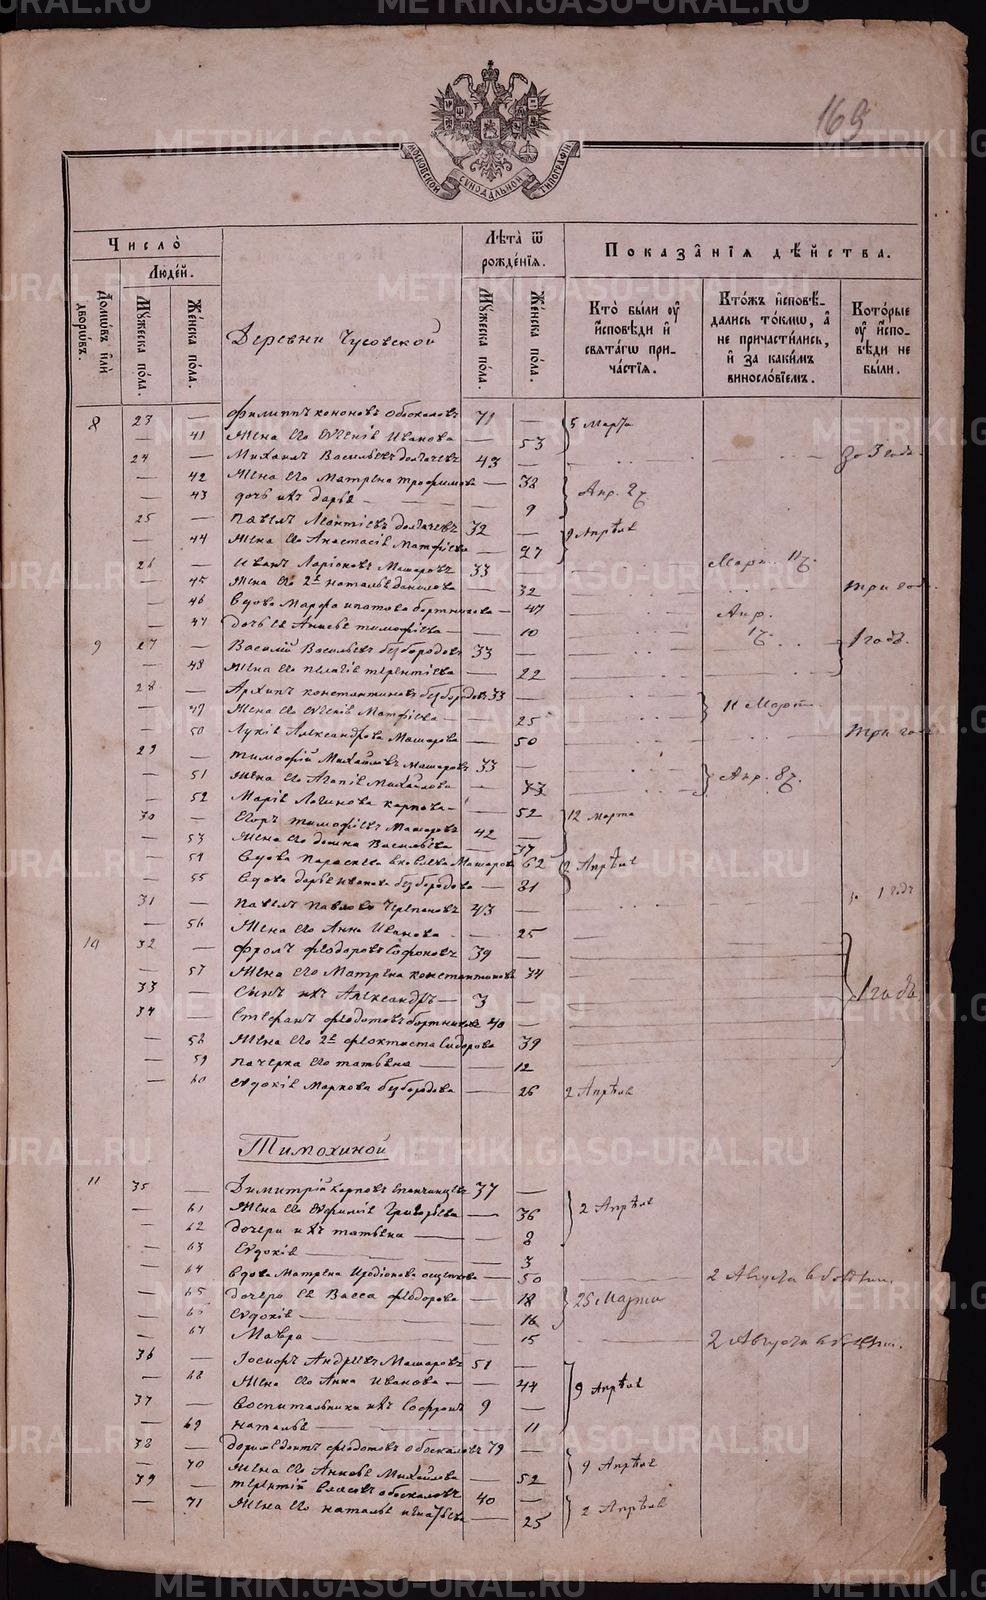 169
МОСКОВСКОЙ СѴНОДАЛЬНОЙ ТИПОГРАФІИ
Число̀
Людéй.
Домѡвъ и҆лѝ дворѡвъ.
Мꙋ́жеска по́ла.
Же́нска по́ла.
Деревни Чусовской
Лѣта̀ ѿ рожде́нїѧ.
Мꙋ́жеска по́ла.
Же́нска по́ла.
Показа̑нїѧ дѣ́йства.
Кто̀ бы́ли ᲂу҆ и҆сповѣди и҆ свѧта́гѡ при-ча́стїѧ.
Кто́жъ и҆сповѣ́-дались то́кмѡ, а҆ не причасти́лись, и҆ за каки́мъ винослóвїемъ.
Кото́рые ᲂу҆ и҆спо-вѣди не бы́ли.
8 23 — Филиппъ Кононовъ Обоскаловъ 71 — 5 Марта
— 41 Жена его Евгенія Иванова — 53
24 — Михаилъ Васильевъ Долгачевъ 43 — до 3 годъ
— 42 Жена его Матрена Трофимова — 38
— 43 дочь ихъ Дарья — 9 Апр. 2ч.
25 — Павелъ Леонтіевъ Долгачевъ 32 — 9 Апрѣля
— 44 Жена его Анастасія Матфіева — 27
26 — Иванъ Ларіоновъ Машаровъ 33 — Март. 11ч.
— 45 Жена его 2я Наталья Данилова — 32 три год.
— 46 Вдова Марфа Ипатова Бортникова — 47 Апр. 1ч.
— 47 дочь ея Анисья Тимофіева — 10
9 27 — Василій Васильевъ Безбородовъ 33 — 1 годъ
— 48 Жена его Пелагія Терентіева — 22
28 — Архипъ Константиновъ Безбородовъ 33 —
— 49 Жена его Евгенія Матфіева — 25 11 Март
— 50 Лукія Александрова Машарова — 50 три год
29 — Тимофій Михайловъ Машаровъ 33 —
— 51 Жена его Агапія Михайлова — 33 Апр. 8ч.
— 52 Марія Логинова Карпова — 52
30 — Егоръ Тимофіевъ Машаровъ 42 — 12 Марта
— 53 Жена его Домна Васильева — 37
— 54 Вдова Параскева Яковлева Машарова 62 2 Апрѣля
— 55 Вдова Дарья Иванова Безбородова — 81
31 — Павелъ Павловъ Черепановъ 43 — 1 годъ
— 56 Жена его Анна Иванова — 25
10 32 — Фролъ Феодоровъ Софоновъ 39 —
— 57 Жена его Матрена Константинова 34
33 — Сынъ ихъ Александръ — 3 — 1 годъ
34 — Стефанъ Федотовъ Бортниковъ 40 —
— 58 Жена его 2я Феоктиста Сидорова 39
— 59 Пачерка его Татьяна — 12
— 60 Евдокія Маркова Безбородова — 26 2 Апрѣля
Тимохиной
11 35 — Димитрій Карповъ Епанчинцевъ 37 —
— 61 Жена его Евфимія Григорьева — 36 2 Апрѣля
— 62 Дочери ихъ Татьяна — 8
— 63 Евдокія — 3
— 64 Вдова Матрена Иродіонова — 50 2 Августа
— 65 дочери ея Васса Феодорова — 18 25 Марта
— 66 Евдокія — 16
— 67 Мавра — 15 2 Августа
36 — Іосифъ Андреевъ Машаровъ 51 —
— 68 Жена его Анна Иванова — 44 9 Апрѣля
37 — Воспитальники ихъ Софронъ 9 —
— 69 Наталья — 11
38 — Доримедонтъ Федотовъ Обоскаловъ 79 —
— 70 Жена его Анисья Михайлова — 52 9 Апрѣля
39 — Терентій Власовъ Обоскаловъ 40 —
— 71 Жена его Наталья Игнатьева — 25 2 Апрѣля
METRIKI.GASO-URAL.RU